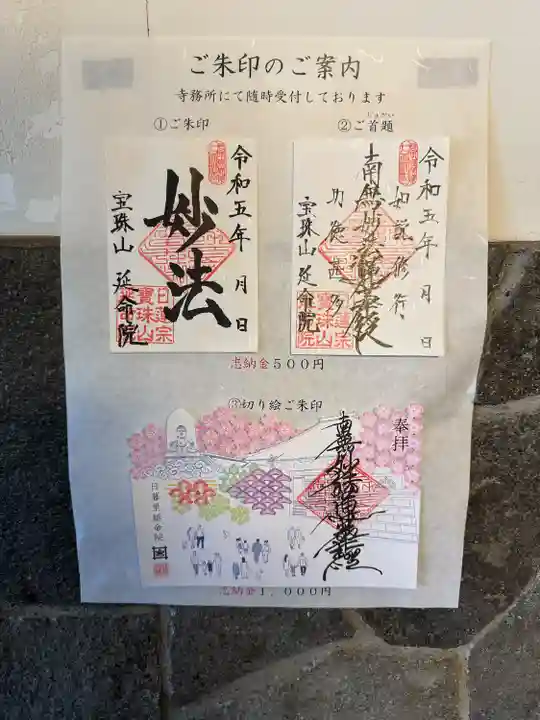 ご朱印のご案内
寺務所にて随時受付しております
①ご朱印
②ご首題
令和五年 月 日
妙法
宝珠山 延命院
日蓮宗
寳珠山
延命院
令和五年 月 日
如説修行
南無妙法蓮華経
功徳甚多
宝珠山 延命院
日蓮宗
寳珠山
延命院
志納金500円
③切り絵ご朱印
奉拝
南無妙法蓮華経
日暮里延命院
志納金1,000円